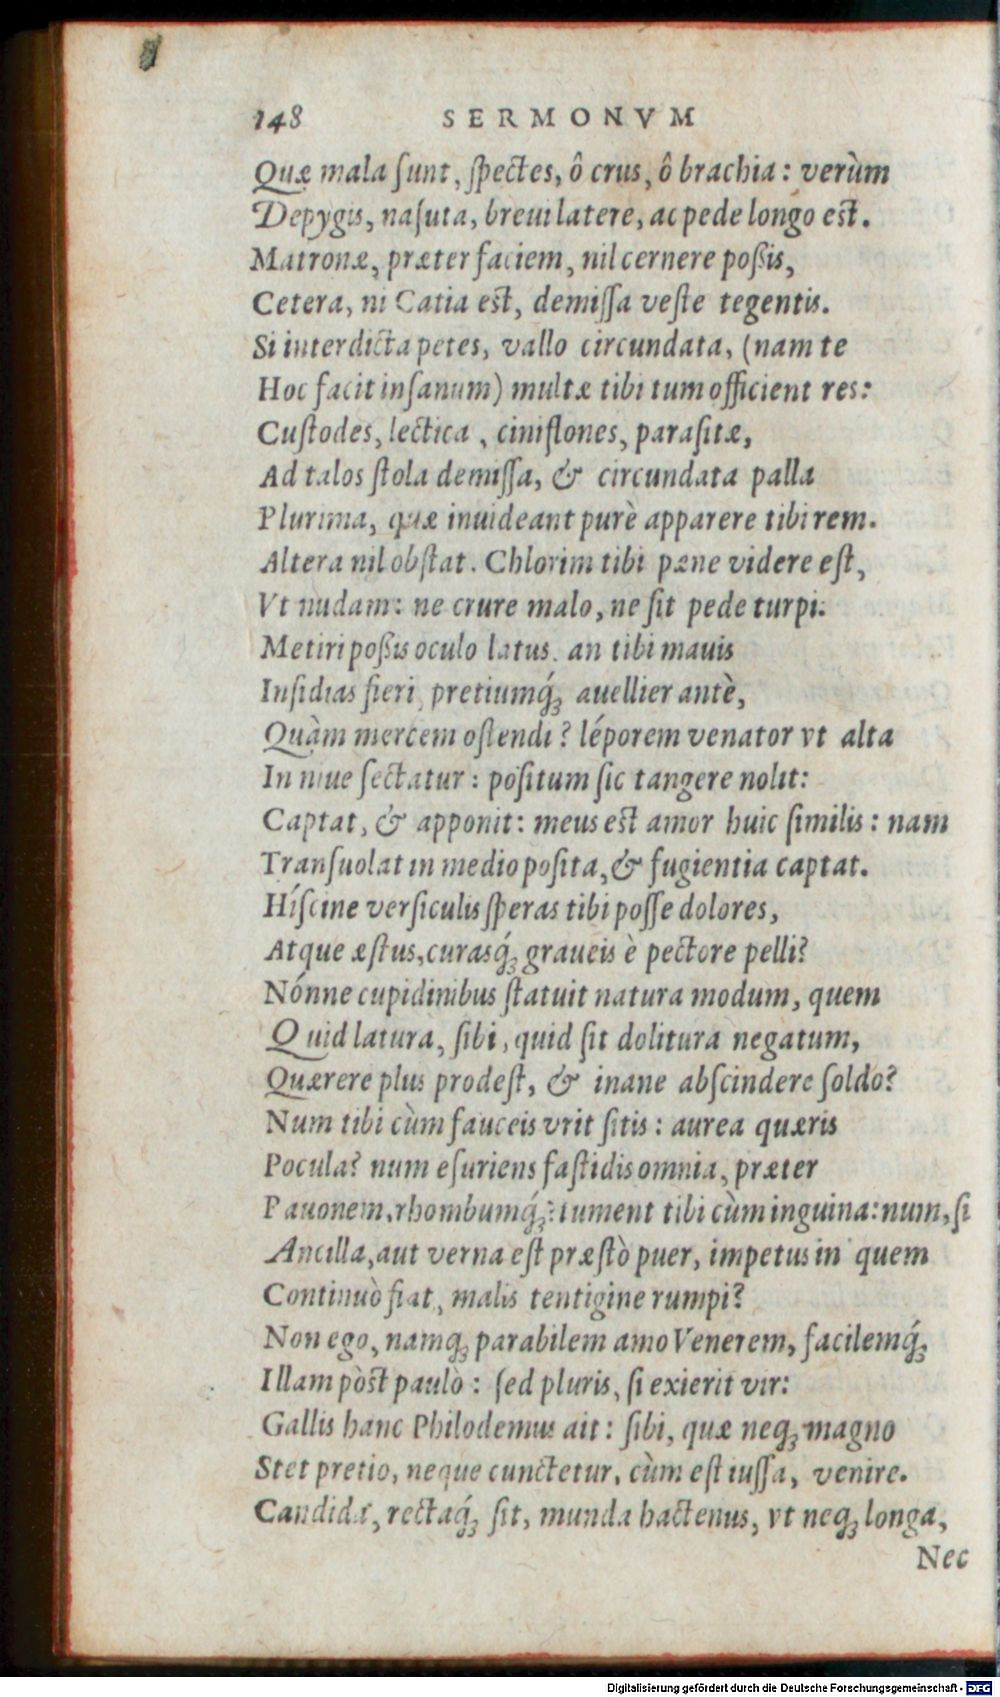 148 SERMONVM
Quæ mala ſunt, ſpectes, ô crus, ô brachia: verùm
Depygis, naſuta, breui latere, ac pede longo est.
Matronæ, præter faciem, nil cernere poßis,
Cetera, ni Catia est, demiſſa veſte tegentis.
Si interdicta petes, vallo circundata, (nam te
Hoc facit inſanum) multæ tibi tum officient res:
Cuſtodes, lectica, ciniflones, paraſitæ,
Ad talos ſtola demiſſa, & circundata palla
Plurima, quæ inuideant purè apparere tibi rem.
Altera nil obſtat. Chlorim tibi pæne videre eſt,
Vt nudam: ne crure malo, ne ſit pede turpi:
Metiri poßis oculo latus. an tibi mauis
Inſidias fieri, pretiumq́; auellier antè,
Quàm mercem oſtendi? léporem venator vt alta
In niue ſectatur: poſitum ſic tangere nolit:
Captat, & apponit: meus est amor huic ſimilis: nam
Tranſuolat in medio poſita, & fugientia captat.
Híſcine verſiculis ſperas tibi poſſe dolores,
Atque æſtus, curasq́; graueis è pectore pelli?
Nónne cupidinibus ſtatuit natura modum, quem
Quid latura, ſibi, quid ſit dolitura negatum,
Quærere plus prodeſt, & inane abſcindere ſoldo?
Num tibi cùm fauceis vrit ſitis: aurea quæris
Pocula? num eſuriens faſtidis omnia, præter
Pauonem, rhombumq́;: tument tibi cùm inguina: num, ſi
Ancilla, aut verna eſt præſtò puer, impetus in quem
Continuò fiat, malis tentigine rumpi?
Non ego, namq; parabilem amo Venerem, facilemq́;
Illam pòst paulò: ſed pluris, ſi exierit vir:
Gallis hanc Philodemus ait: ſibi, quæ neq; magno
Stet pretio, neque cunctetur, cùm eſt iuſſa, venire.
Candida, rectaq́; ſit, munda hactenus, vt neq; longa,
Nec
Digitalisierung gefördert durch die Deutsche Forschungsgemeinschaft - DFG